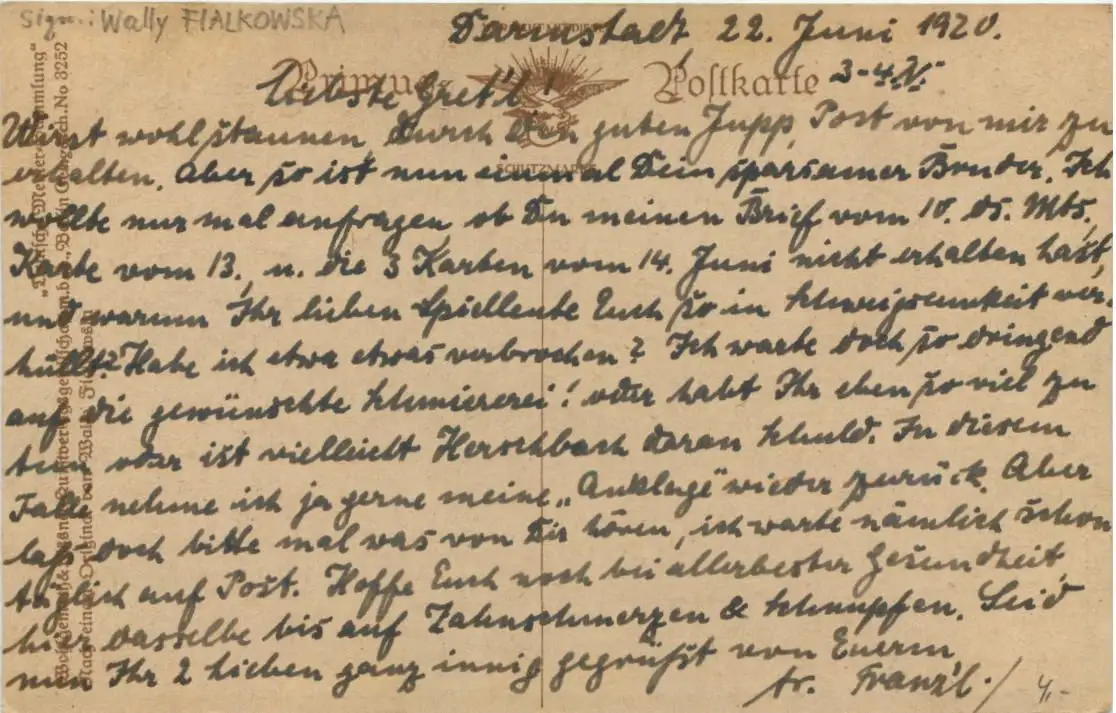 Sign.: Wally FIALKOWSKA
Darmstadt, 22. Juni 1920.
Primus-Postkarte
3-4.N.
Liebste Gret'l!
SCHUTZMARKE
Wirst wohl staunen, durch den guten Jupp, Post von mir zu
erhalten. Aber so ist nun einmal Dein sparsamer Bruder. Ich
wollte nur mal anfragen ob Du meinen Brief vom 10. ds. Mts.,
Karte vom 13., u. die 3 Karten vom 14. Juni nicht erhalten hast,
und warum Ihr lieben Spielleute Euch so in Schweigsamkeit ver-
hüllt? Habe ich etwa etwas verbrochen? Ich warte doch so dringend
auf die gewünschte Schmiererei! oder habt Ihr eben so viel zu
tun oder ist vielleicht Herschbach daran Schuld. In diesem
Falle nehme ich ja gerne meine „Anklage" wieder zurück. Aber
laß doch bitte mal was von Dir hören, ich warte nämlich schon
täglich auf Post. Hoffe Euch noch bei allerbester Gesundheit,
hier dasselbe bis auf Zahnschmerzen & Schnupfen. Seid
nun Ihr 2 Lieben ganz innig gegrüßt von Euerm
tr. Franz'l.
4,-
„Deutsche Meister-Sammlung"
Berlin
Gesch.No 3252
Nach ein. Original von Wally Fialkowska